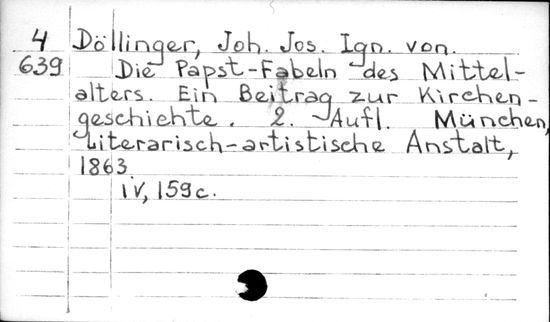 4 Döllinger, Joh. Jos. Ign. von.
639 Die Papst-Fabeln des Mittel-
alters. Ein Beitrag zur Kirchen-
geschichte. 2. Aufl. München,
Literarisch-artistische Anstalt,
1863.
IV, 159 c.